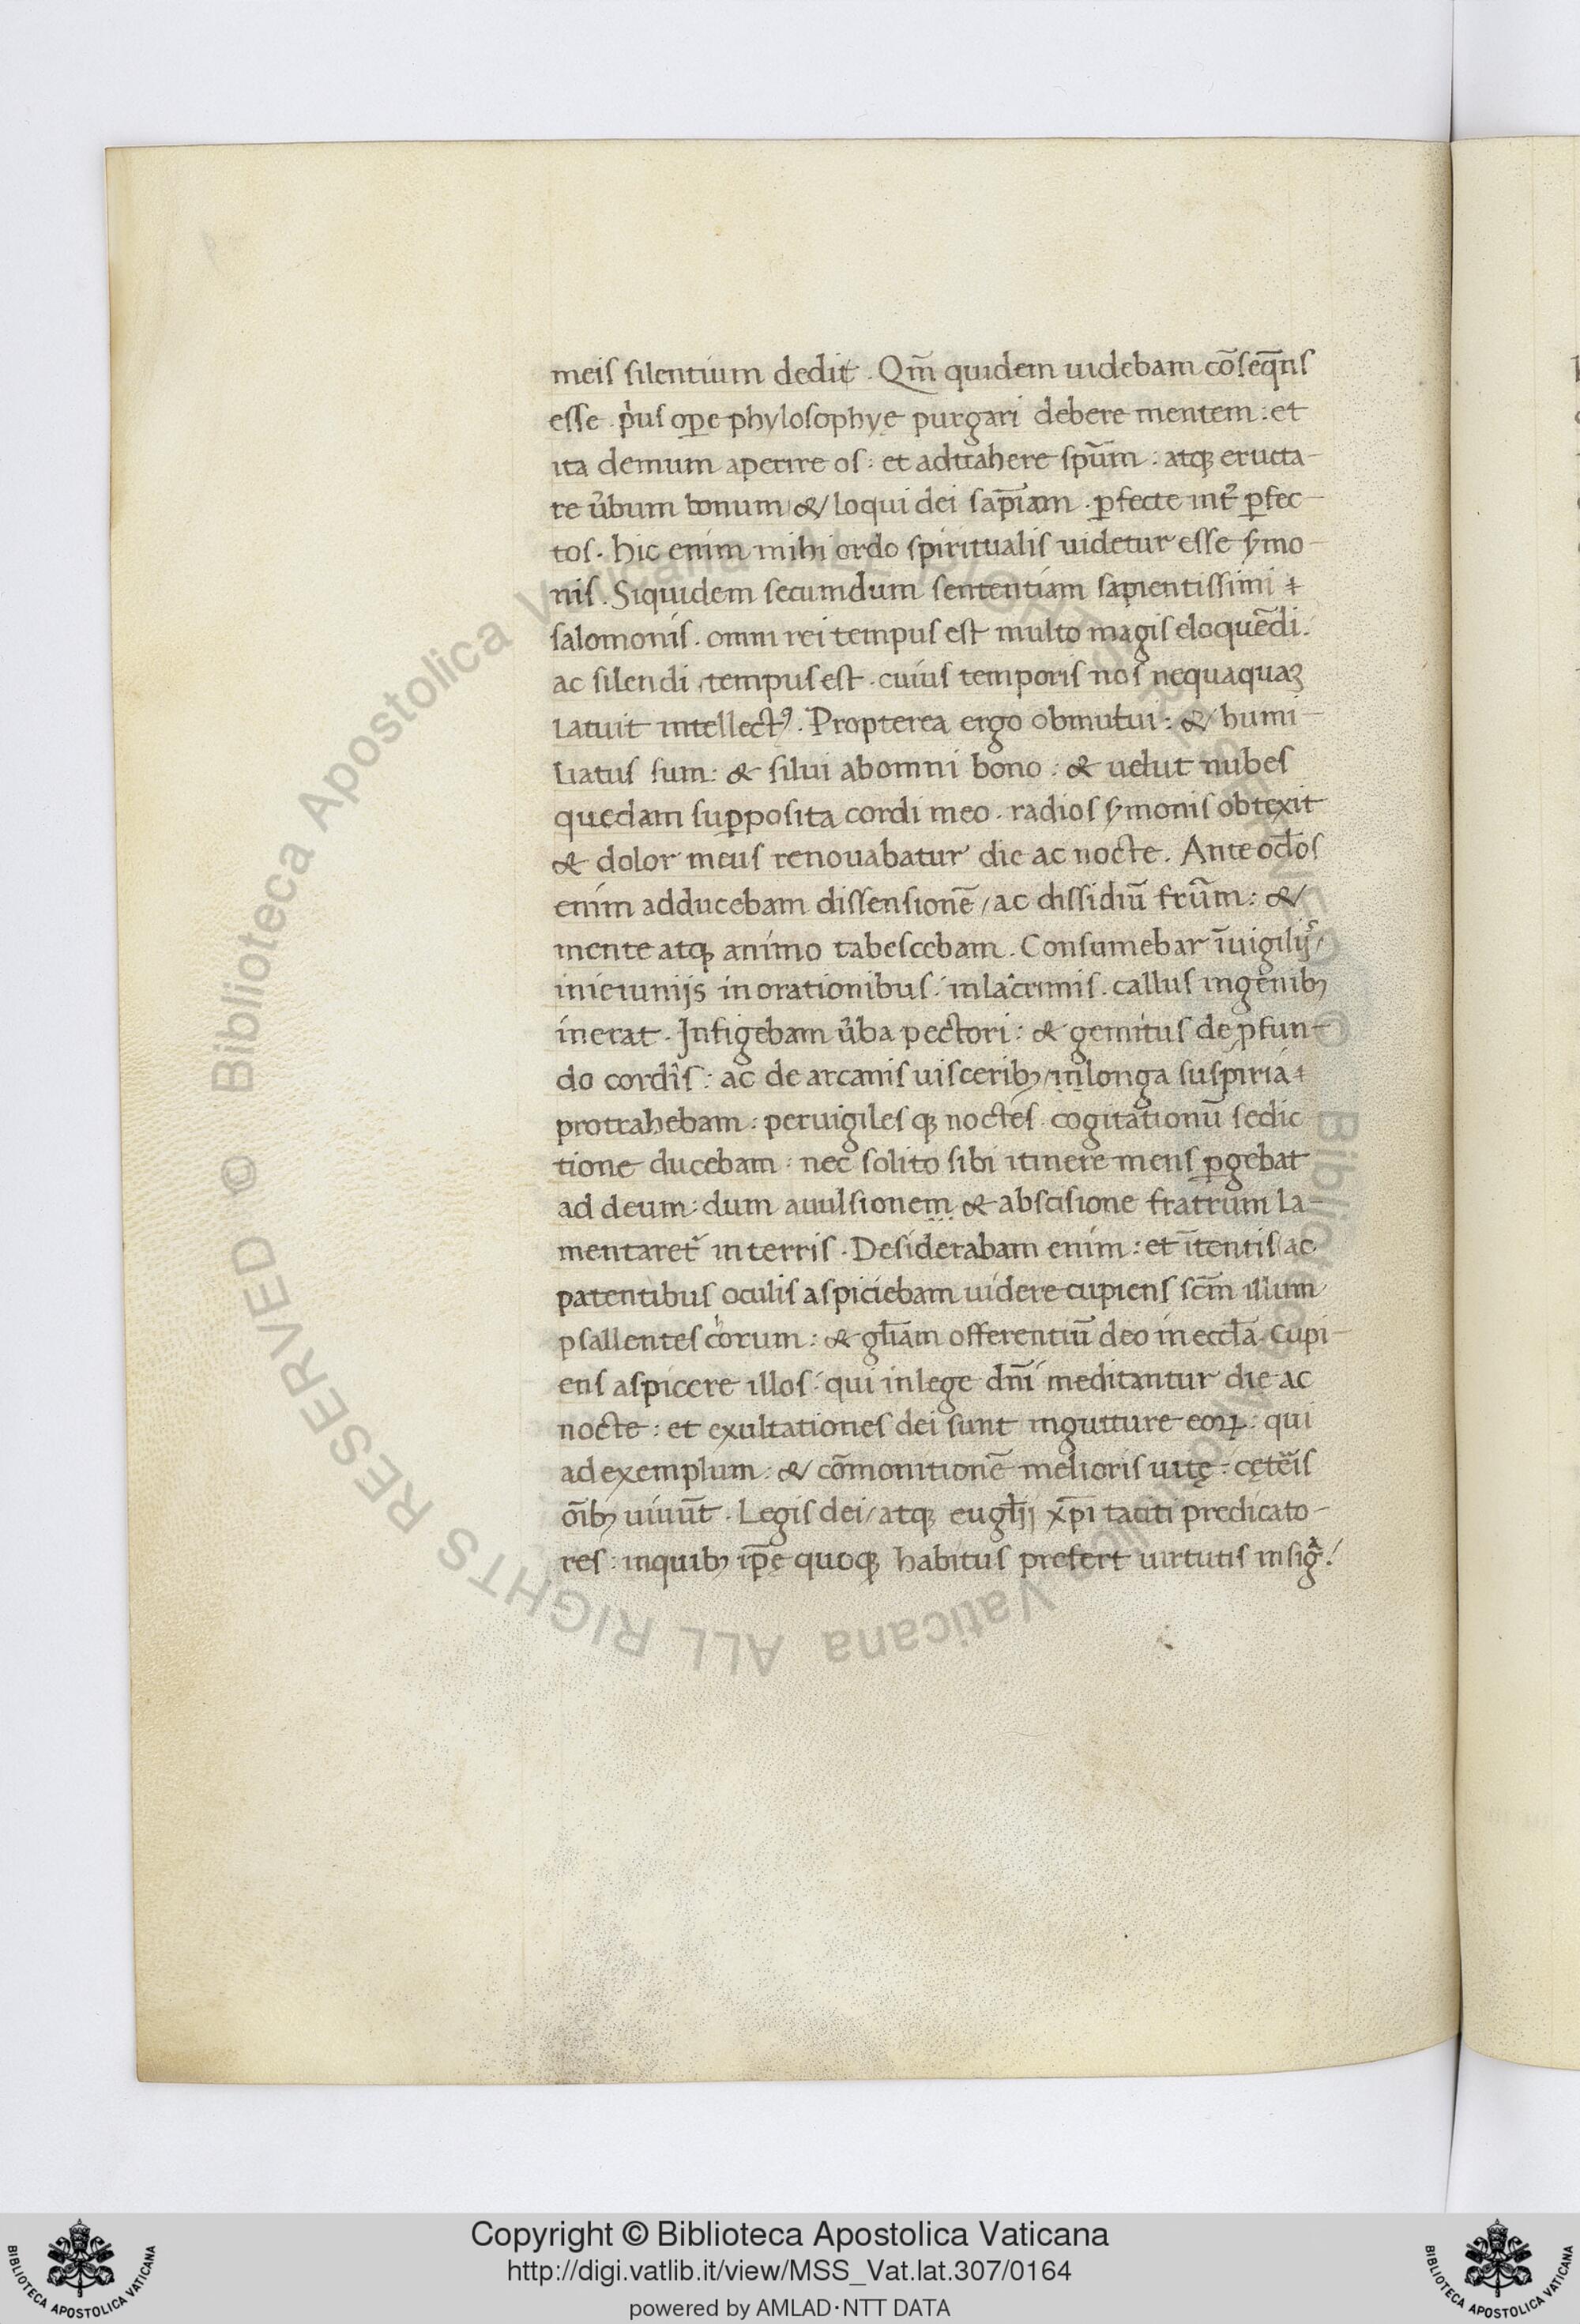 meis silentium dedit. Qm̄ quidem uidebam cōseq̄ns
esse prius ope phylosophye purgari debere mentem: et
ita demum aperire os: et adtrahere spūm: atq; eructa-
re u̓bum bonum & loqui dei sap̄iam. ꝑfecte int̓ ꝑfec-
tos. hic enim mihi ordo spiritualis uidetur esse symo-
nis. Siquidem secumdum sententiam sapientissimi
salomonis. omni rei tempus est multo magis eloquēdi.
ac silendi, tempus est. cuius temporis nos nequaquaꝫ
latuit intellectꝰ. Propterea ergo obmutui: & humi-
liatus sum: & silui abomni bono: & uelut nubes
quedam supposita cordi meo. radios symonis obtexit
& dolor meus renouabatur die ac nocte. Ante oclos
enim adducebam dissensionē, ac dissidiū frūm: &
mente atq; animo tabescebam. Consumebar īuigilijs
inieiunijs in orationibus: inlacrimis. callus ingenibꝫ
inerat. Infigebam u̓ba pectori: & gemitus de ꝓfun-
do cordis: ac de arcanis uisceribꝫ, inlonga suspiria
protrahebam: peruigiles q; noctes cogitationū sedic
tione ducebam: nec solito sibi itinere mens ꝑgebat
ad deum: dum auulsionem & abscisione fratrum la-
mentaret᷑ in terris. Desiderabam enim: et ītentis, ac
patentibus oculis aspiciebam uidere cupiens scm̄ illum
psallentes corum: & gl̄iam offerentiū deo in eccl̄a. Cupi-
ens aspicere illos: qui inlege dn̄i meditantur die ac
nocte: et exultationes dei sunt ingutture eoꝝ: qui
ad exemplum: & cōmonitionē melioris uitę: cęteris
oībꝫ uiuūt. Legis dei, atq; eugl̄ij xp̄i taciti predicato-
res: inquibꝫ ip̄e quoq; habitus prefert uirtutis insigᵃ.
© Biblioteca Apostolica Vaticana ALL RIGHTS RESERVED © Biblioteca Apostolica Vaticana ALL RIGHTS RESERVED
Copyright © Biblioteca Apostolica Vaticana
http://digi.vatlib.it/view/MSS_Vat.lat.307/0164
powered by AMLAD·NTT DATA
BIBLIOTECA APOSTOLICA VATICANA
BIBLIOTECA APOSTOLICA VATICANA